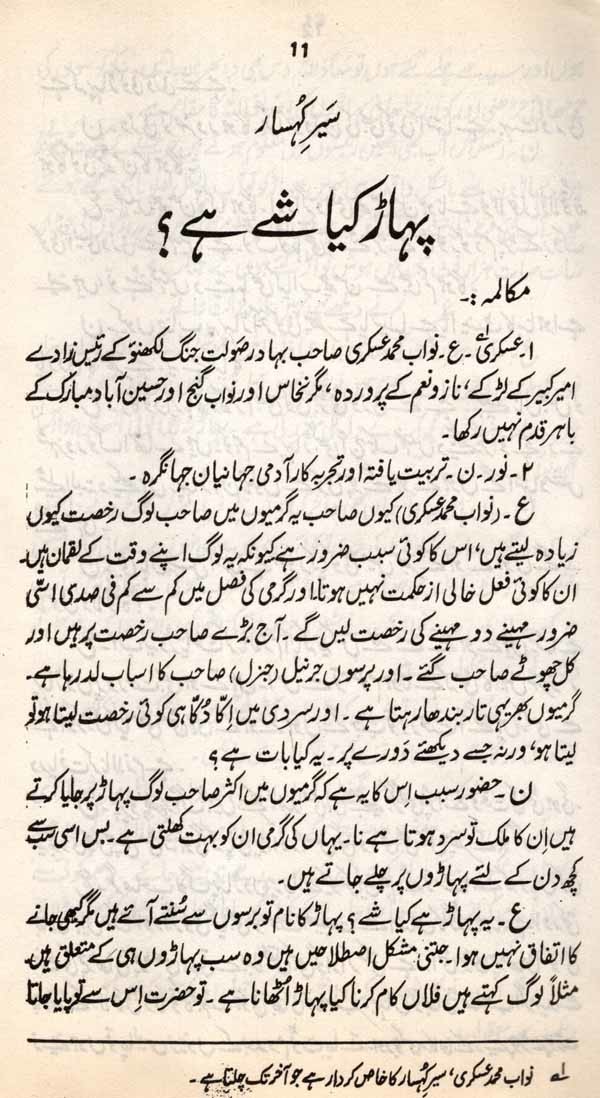 11
سَیرِ کُہسار
پہاڑ کیا شے ہے؟
مکالمہ :-
۱۔ عسکریؒ ۔ ع ۔ نواب محمد عسکری صاحب بہادر صَولت جنگ لکھنؤ کے رئیس زادے
امیر کبیر کے لڑکے، ناز و نعم کے پروردہ، مگر نخاس اور نواب گنج اور حسین آباد مبارک کے
باہر قدم نہیں رکھا۔
۲۔ نور ۔ ن ۔ تربیت یافتہ اور تجربہ کار آدمی جہانیان جہانگرہ ۔
ع ۔ (نواب محمد عسکری) کیوں صاحب یہ گرمیوں میں صاحب لوگ رخصت کیوں
زیادہ لیتے ہیں، اس کا کوئی سبب ضرور ہے کیونکہ یہ لوگ اپنے وقت کے لقمان ہیں۔
ان کا کوئی فعل خالی از حکمت نہیں ہوتا۔ اور گرمی کی فصل میں کم سے کم فی صدی اسّی
ضرور مہینے دو مہینے کی رخصت لیں گے ۔ آج بڑے صاحب رخصت پر ہیں اور
کل چھوٹے صاحب گئے ۔ اور پرسوں جرنیل (جنرل) صاحب کا اسباب لد رہا ہے۔
گرمیوں بھر یہی تار بندھا رہتا ہے ۔ اور سردی میں اِکّا دُکّا ہی کوئی رخصت لیتا ہو تو
لیتا ہو، ورنہ جسے دیکھئے دَورے پر۔ یہ کیا بات ہے ؟
ن ۔ حضور سبب اِس کا یہ ہے کہ گرمیوں میں اکثر صاحب لوگ پہاڑ پر جایا کرتے
ہیں اِن کا ملک تو سرد ہوتا ہے نا۔ یہاں کی گرمی ان کو بہت کھلتی ہے۔ بس اسی سبب سے
کچھ دن کے لئے پہاڑوں پر چلے جاتے ہیں۔
ع ۔ یہ پہاڑ ہے کیا شے ؟ پہاڑ کا نام تو برسوں سے سُنتے آئے ہیں مگر کبھی جانے
کا اتفاق نہیں ہوا۔ جتنی مشکل اصطلاحیں ہیں وہ سب پہاڑوں ہی کے متعلق ہیں۔
مثلاً لوگ کہتے ہیں فلاں کام کرنا کیا پہاڑ اُٹھانا ہے ۔ تو حضرت اِس سے تو پایا جاتا
لے نواب محمد عسکری، سیرِ کُہسار کا خاص کردار ہے جو آخر تک چلتا ہے ۔